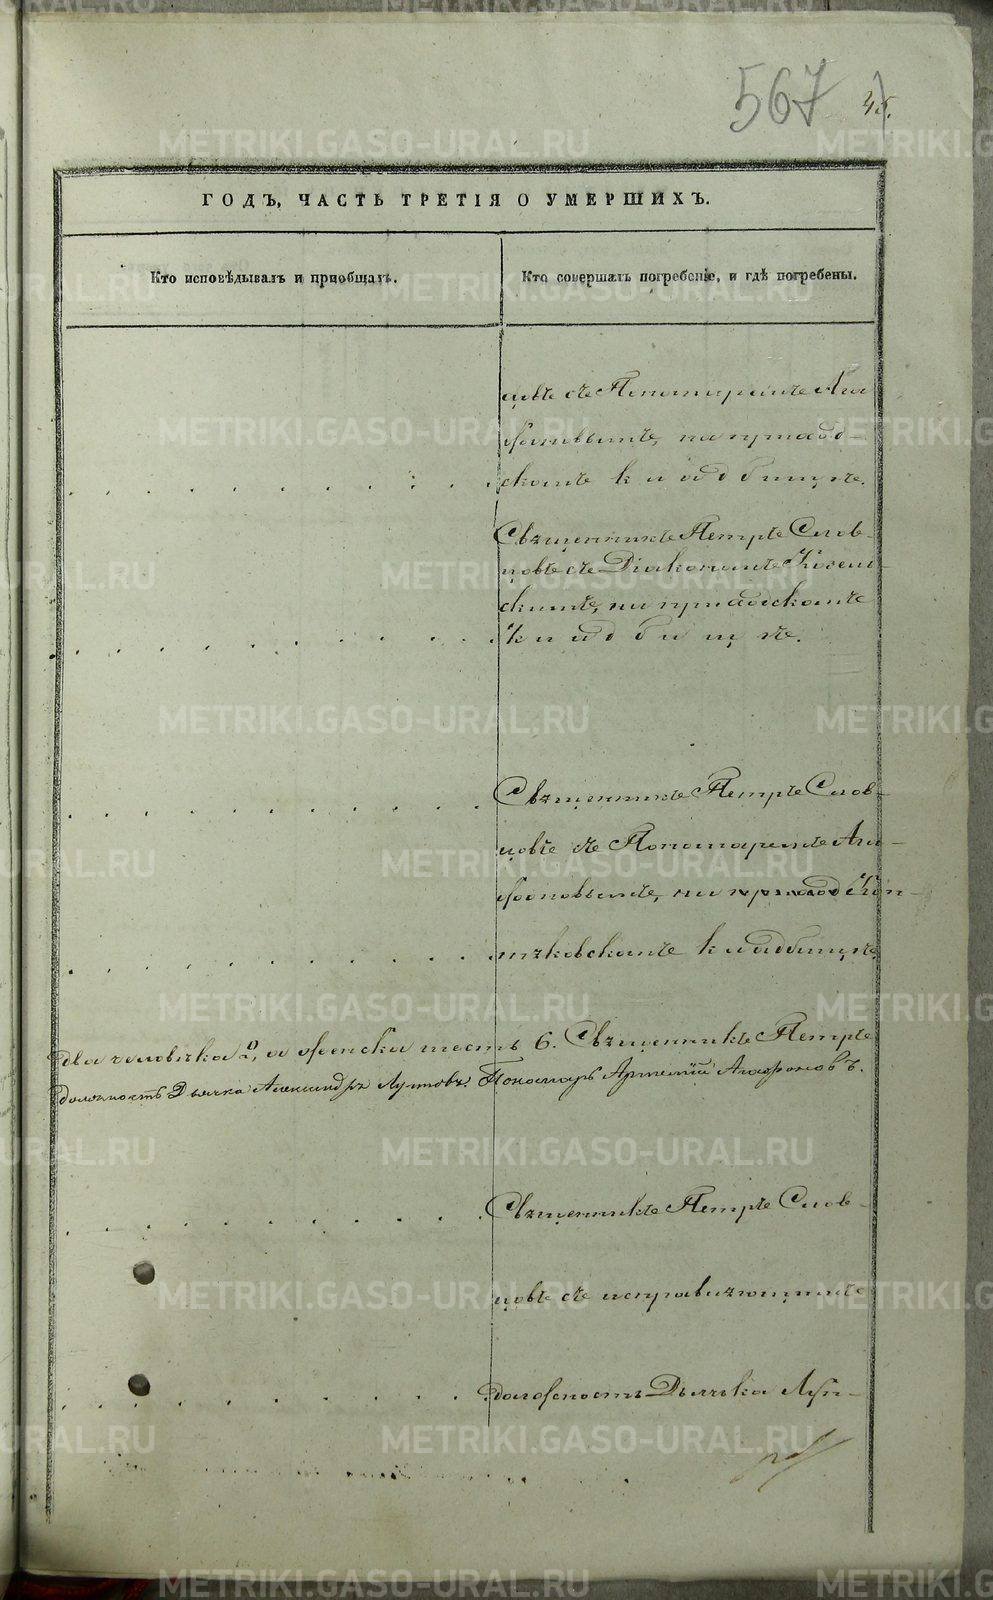 567
45.
ГОДЪ, ЧАСТЬ ТРЕТІЯ О УМЕРШИХЪ.
Кто исповѣдывалъ и пріобщалъ.
Кто совершалъ погребеніе, и гдѣ погребены.
цовъ съ Пономаремъ Ага
фоновымъ, на приход-
скомъ кладбищѣ.
Священникъ Петръ Слов-
цовъ съ Діакономъ
скимъ, на приходскомъ
кладбищѣ.
Священникъ Петръ Слов-
цовъ съ Пономаремъ Ага-
фоновымъ, на приход
кладбищѣ.
два человѣка 2, а женска шесть 6. Священникъ Петръ
должность Дьячка Александръ Лутовъ. Пономарь Артемій Агафоновъ.
Священникъ Петръ Слов-
цовъ съ исправляющимъ
должность Дьячка Лут-
METRIKI.GASO-URAL.RU